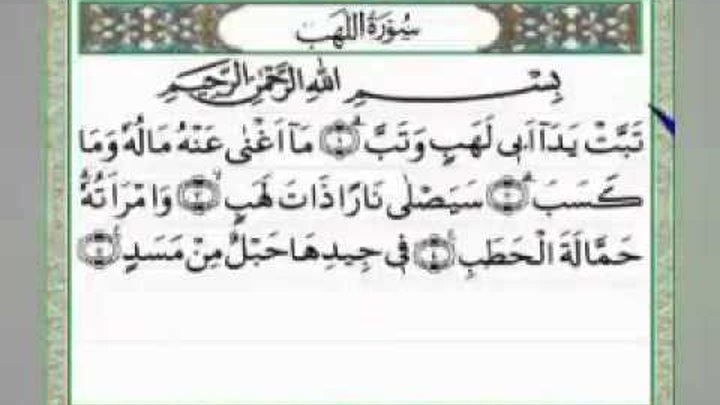 سُوْرَةُ اللَّهَبِ
بِسْمِ اللهِ الرَّحْمٰنِ الرَّحِيْمِ
تَبَّتْ يَدَآ اَبِيْ لَهَبٍ وَّتَبَّۗ ۝١ مَآ اَغْنٰى عَنْهُ مَالُهٗ وَمَا
كَسَبَۗ ۝٢ سَيَصْلٰى نَارًا ذَاتَ لَهَبٍۙ ۝٣ وَّامْرَاَتُهٗۗ
حَمَّالَةَ الْحَطَبِۚ ۝٤ فِيْ جِيْدِهَا حَبْلٌ مِّنْ مَّسَدٍۚ ۝٥